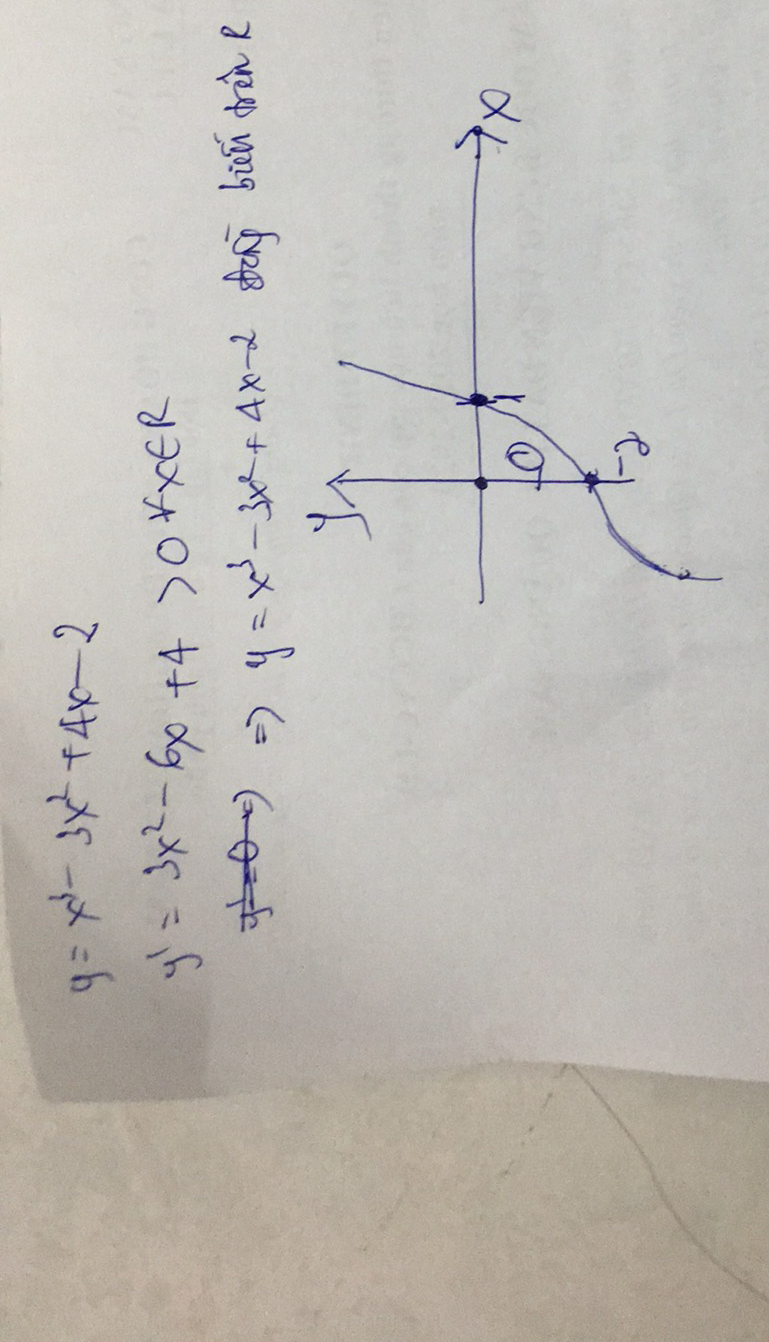 y = x³ - 3x² + 4x - 2
y' = 3x² - 6x + 4 > 0 ∀x∈R
y' = 0 => => y = x³ - 3x² + 4x - 2 đồng biến trên R
y
x
1
O
-2